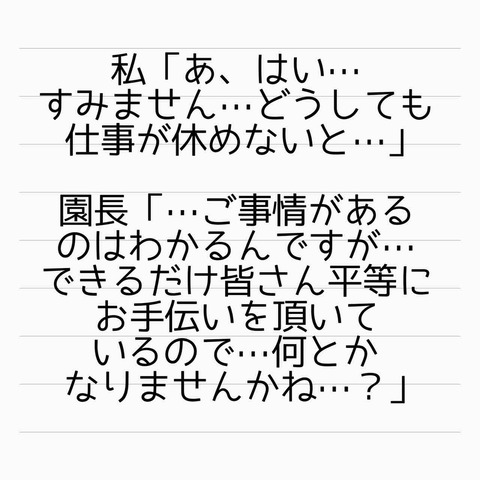 私「あ、はい…
すみません…どうしても
仕事が休めないと…」
園長「…ご事情がある
のはわかるんですが…
できるだけ皆さん平等に
お手伝いを頂いて
いるので…何とか
なりませんかね…？」